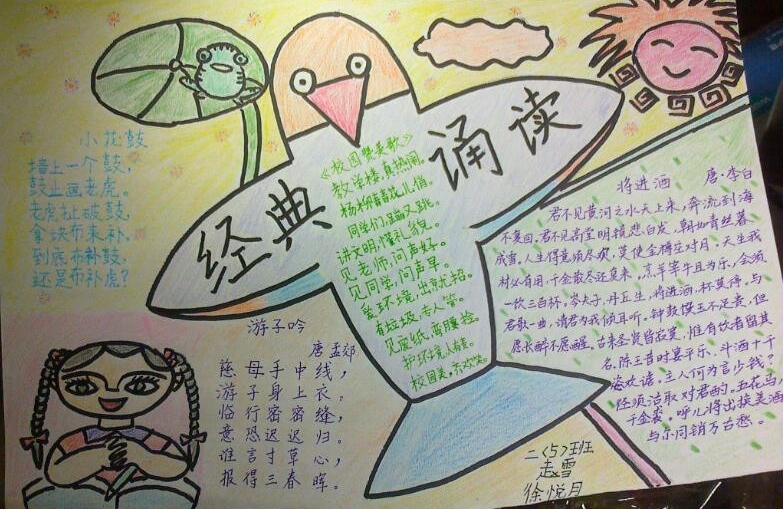 经典 诵读
小花鼓
墙上一个鼓,
鼓上画老虎。
老虎扯破鼓,
拿块布来补。
到底布补鼓,
还是布补虎?
《校园赞美歌》
教学楼,真热闹,
杨柳青青花儿俏。
同学们,蹦又跳。
讲文明,懂礼貌。
见老师,问声好。
见同学,问声早。
美环境,出高招。
有垃圾,专人管。
见废纸,弯腰捡。
护环境,
校园美,
游子吟
唐 孟郊
慈母手中线,
游子身上衣。
临行密密缝,
意恐迟迟归。
谁言寸草心,
报得三春晖。
将进酒 唐·李白
君不见黄河之水天上来,奔流到海
不复回。君不见高堂明镜悲白发,朝如青丝暮
成雪。人生得意须尽欢,莫使金樽空对月。天生我
材必有用,千金散尽还复来,烹羊宰牛且为乐,会须
一饮三百杯。岑夫子,丹丘生,将进酒,杯莫停。与
君歌一曲,请君为我倾耳听。钟鼓馔玉不足贵,但
愿长醉不愿醒。古来圣贤皆寂寞,惟有饮者留其
名。陈王昔时宴平乐,斗酒十千
恣欢谑。主人何为言少钱?
径须沽取对君酌。五花马
千金裘。呼儿将出换美酒
与尔同销万古愁。
二〈5〉班
赵雪
徐悦月